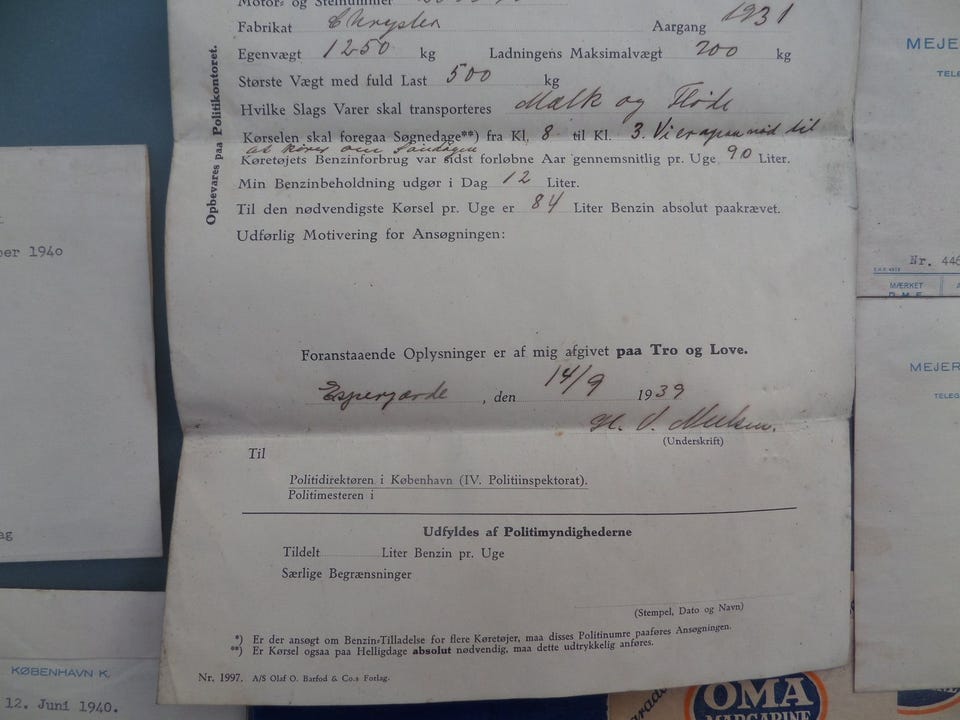 Motor- og Stelnummer
Fabrikat Chrysler Aargang 1931
Egenvægt 1250 kg Ladningens Maksimalvægt 700 kg
Største Vægt med fuld Last 500 kg
Hvilke Slags Varer skal transporteres Mælk og Fløde
Kørselen skal foregaa Søgnedage**) fra Kl. 8 til Kl. 3. Vi er nød til
at køre om Søndagen
Køretøjets Benzinforbrug var sidst forløbne Aar gennemsnitlig pr. Uge 90 Liter.
Min Benzinbeholdning udgør i Dag 12 Liter.
Til den nødvendigste Kørsel pr. Uge er 84 Liter Benzin absolut paakrævet.
Udførlig Motivering for Ansøgningen:
Foranstaaende Oplysninger er af mig afgivet paa Tro og Love.
Espergærde, den 14/9 1939
H. V. Nielsen.
(Underskrift)
Til
Politidirektøren i København (IV. Politiinspektorat).
Politimesteren i
Udfyldes af Politimyndighederne
Tildelt Liter Benzin pr. Uge
Særlige Begrænsninger
(Stempel, Dato og Navn)
*) Er der ansøgt om Benzin-Tilladelse for flere Køretøjer, maa disses Politinumre paaføres Ansøgningen.
**) Er Kørsel ogsaa paa Helligdage absolut nødvendig, maa dette udtrykkelig anføres.
Nr. 1997. A/S Olaf O. Barfod & Co.s Forlag.
Opbevares paa Politikontoret.
ber 1940
ag
KØBENHAVN K.
12. Juni 1940.
MEJER
TELE
Nr. 446
MÆRKET
MEJER
TELEG
OMA
MARGARINE